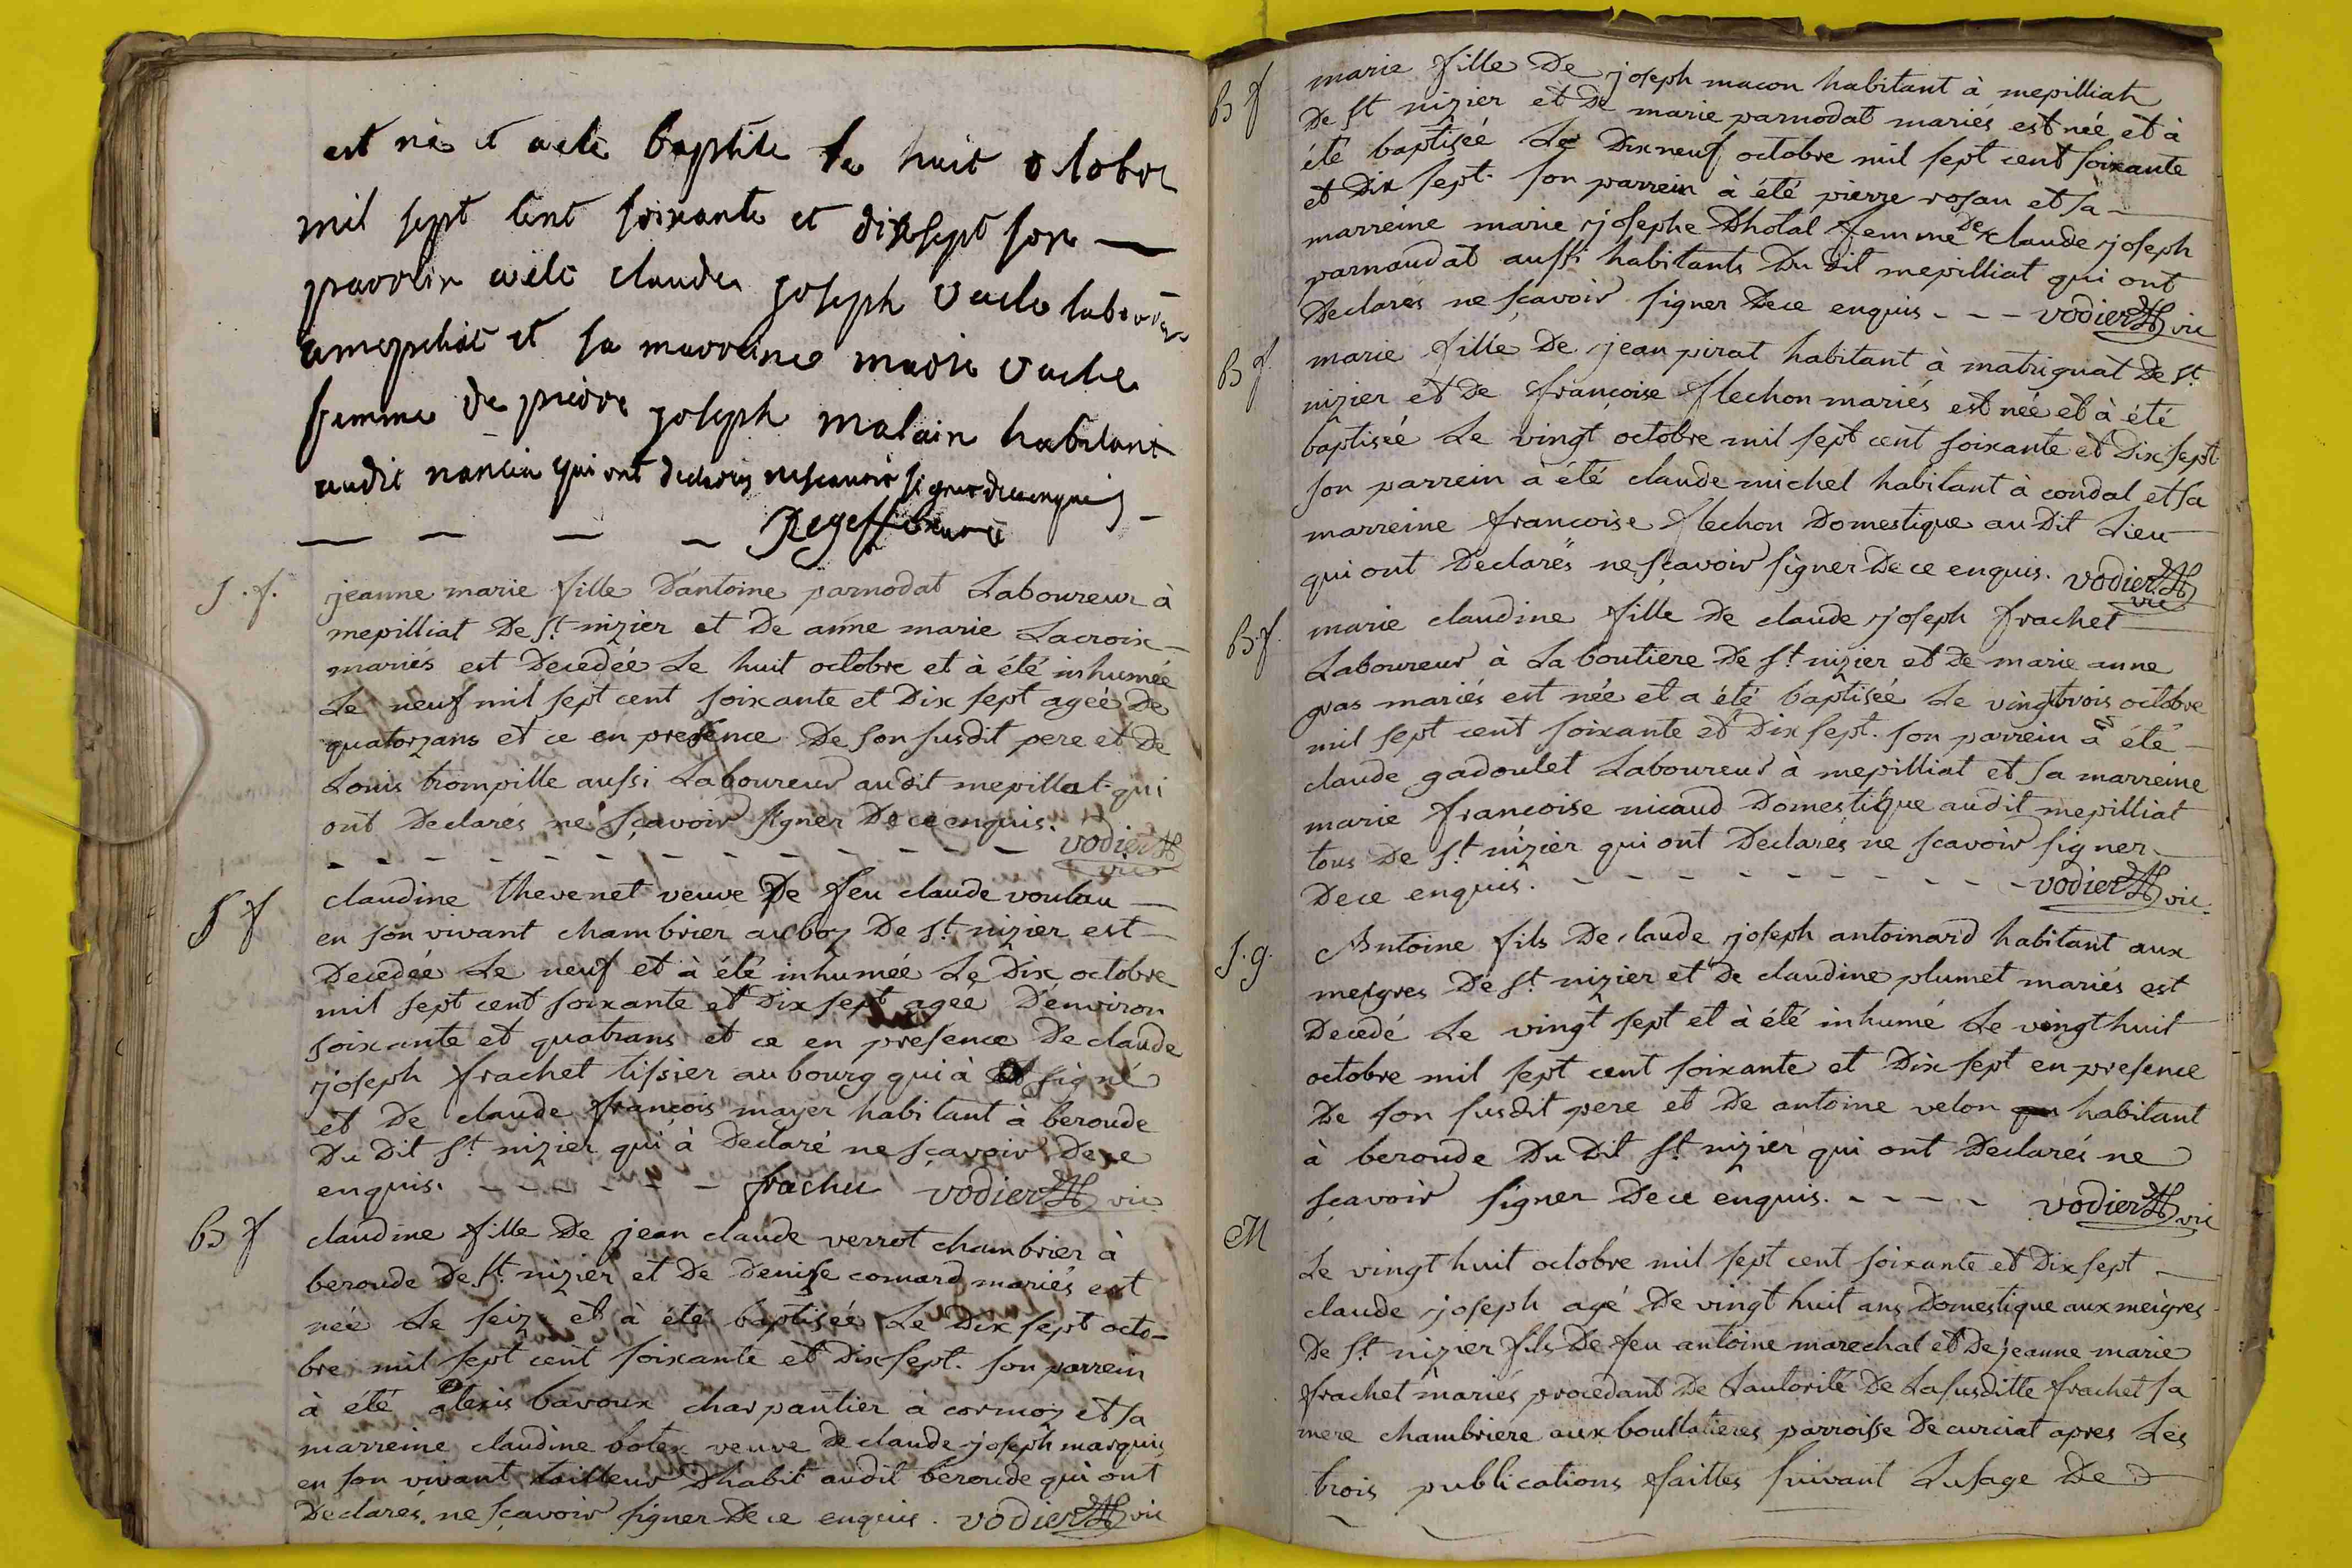 est né et a eté baptisé le huit octobre
mil sept cent soixante et dixsept son
parrein a eté claude joseph vache
et sa marreine marie vache
femme de pierre joseph malain habitant
audit nancia qui ont declarés ne scavoir signer de ce enquis
Regeffe curé
S. f.
jeanne marie fille D'antoine parnodat Laboureur à
mepilliat De St nizier et De anne marie Lacroix
mariés est Decedée Le huit octobre et à été inhumée
Le neuf mil sept cent soixante et Dix sept ageé De
quatorzans et ce en presence De son susdit pere et De
Louis trompille aussi Laboureur audit mepillat qui
ont Declarés ne sçavoir signer De ce enquis.
vodier vic
S f
claudine thevenet veuve De feu claude voulau
en son vivant chambrier au boz De St nizier est
Decedée Le neuf et à été inhumée Le Dix octobre
mil sept cent soixante et Dix sept agee D'environ
soixante et quatrans et ce en presence De claude
joseph frachet tissier au bourg qui à signé
et De claude françois mayer habitant à beroude
Du Dit St nizier qui à Declaré ne sçavoir De ce
enquis. - - - - - - frachet vodier vic
B f
claudine fille De jean claude verrot chambrier à
beroude De St nizier et De Denise comard mariés est
née Le seiz et à été baptiseé Le Dix sept octo-
bre mil sept cent soixante et Dix sept. son parrein
à été alexis bavoux charpantier à cormoz et sa
marreine claudine botex veuve de claude joseph marquis
en son vivant tailleur D'habit audit beroude qui ont
Declarés ne sçavoir signer De ce enquis. vodier vic
B f
marie fille De joseph macon habitant à mepilliat
De St nizier et De marie parnodat mariés est née et à
été baptiseé Le Dix neuf octobre mil sept cent soixante
et Dix sept. son parrein à été pierre rosau et sa
marreine marie josephe Dhotal femme De claude joseph
parnaudat aussi habitants Du Dit mepilliat qui ont
Declarés ne sçavoir signer De ce enquis - - - vodier vic
B f
marie fille De jean pirat habitant à matrignat De St
nizier et De françoise flechon mariés est née et à été
baptiseé Le vingt octobre mil sept cent soixante et Dix sept
son parrein à été claude michel habitant à condal et sa
marreine francoise flechon Domestique au Dit Lieu
qui ont Declarés ne sçavoir signer De ce enquis. vodier
vic
B. f.
marie claudine fille De claude joseph frachet
Laboureur à La boutiere De St nizier et De marie anne
gras mariés est née et a été baptiseé Le vingttrois octobre
mil sept cent soixante et Dix sept. son parrein à été
claude gadoulet Laboureur à mepilliat et sa marreine
marie francoise nicaud Domestique audit mepilliat
tous De St nizier qui ont Declarés ne scavoir signer
De ce enquis. - - - - - - - - - vodier vic.
S. g.
Antoine fils De claude joseph antoinard habitant aux
meigres De St nizier et De claudine plumet mariés est
Decedé Le vingt sept et à été inhumé Le vingt huit
octobre mil sept cent soixante et Dix sept en presence
De son susdit pere et De antoine velon habitant
à beroude Du Dit St nizier qui ont Declarés ne
sçavoir signer De ce enquis. - - - - vodier vic
M
Le vingt huit octobre mil sept cent soixante et Dix sept
claude joseph agé De vingt huit ans Domestique aux meigres
De St nizier fils De feu antoine marechal et De jeanne marie
frachet mariés procedant De Lautorité De Lasusditte frachet sa
mere chambriere aux boullatieres parroisse De curciat apres Les
trois publications faittes suivant Lusage De